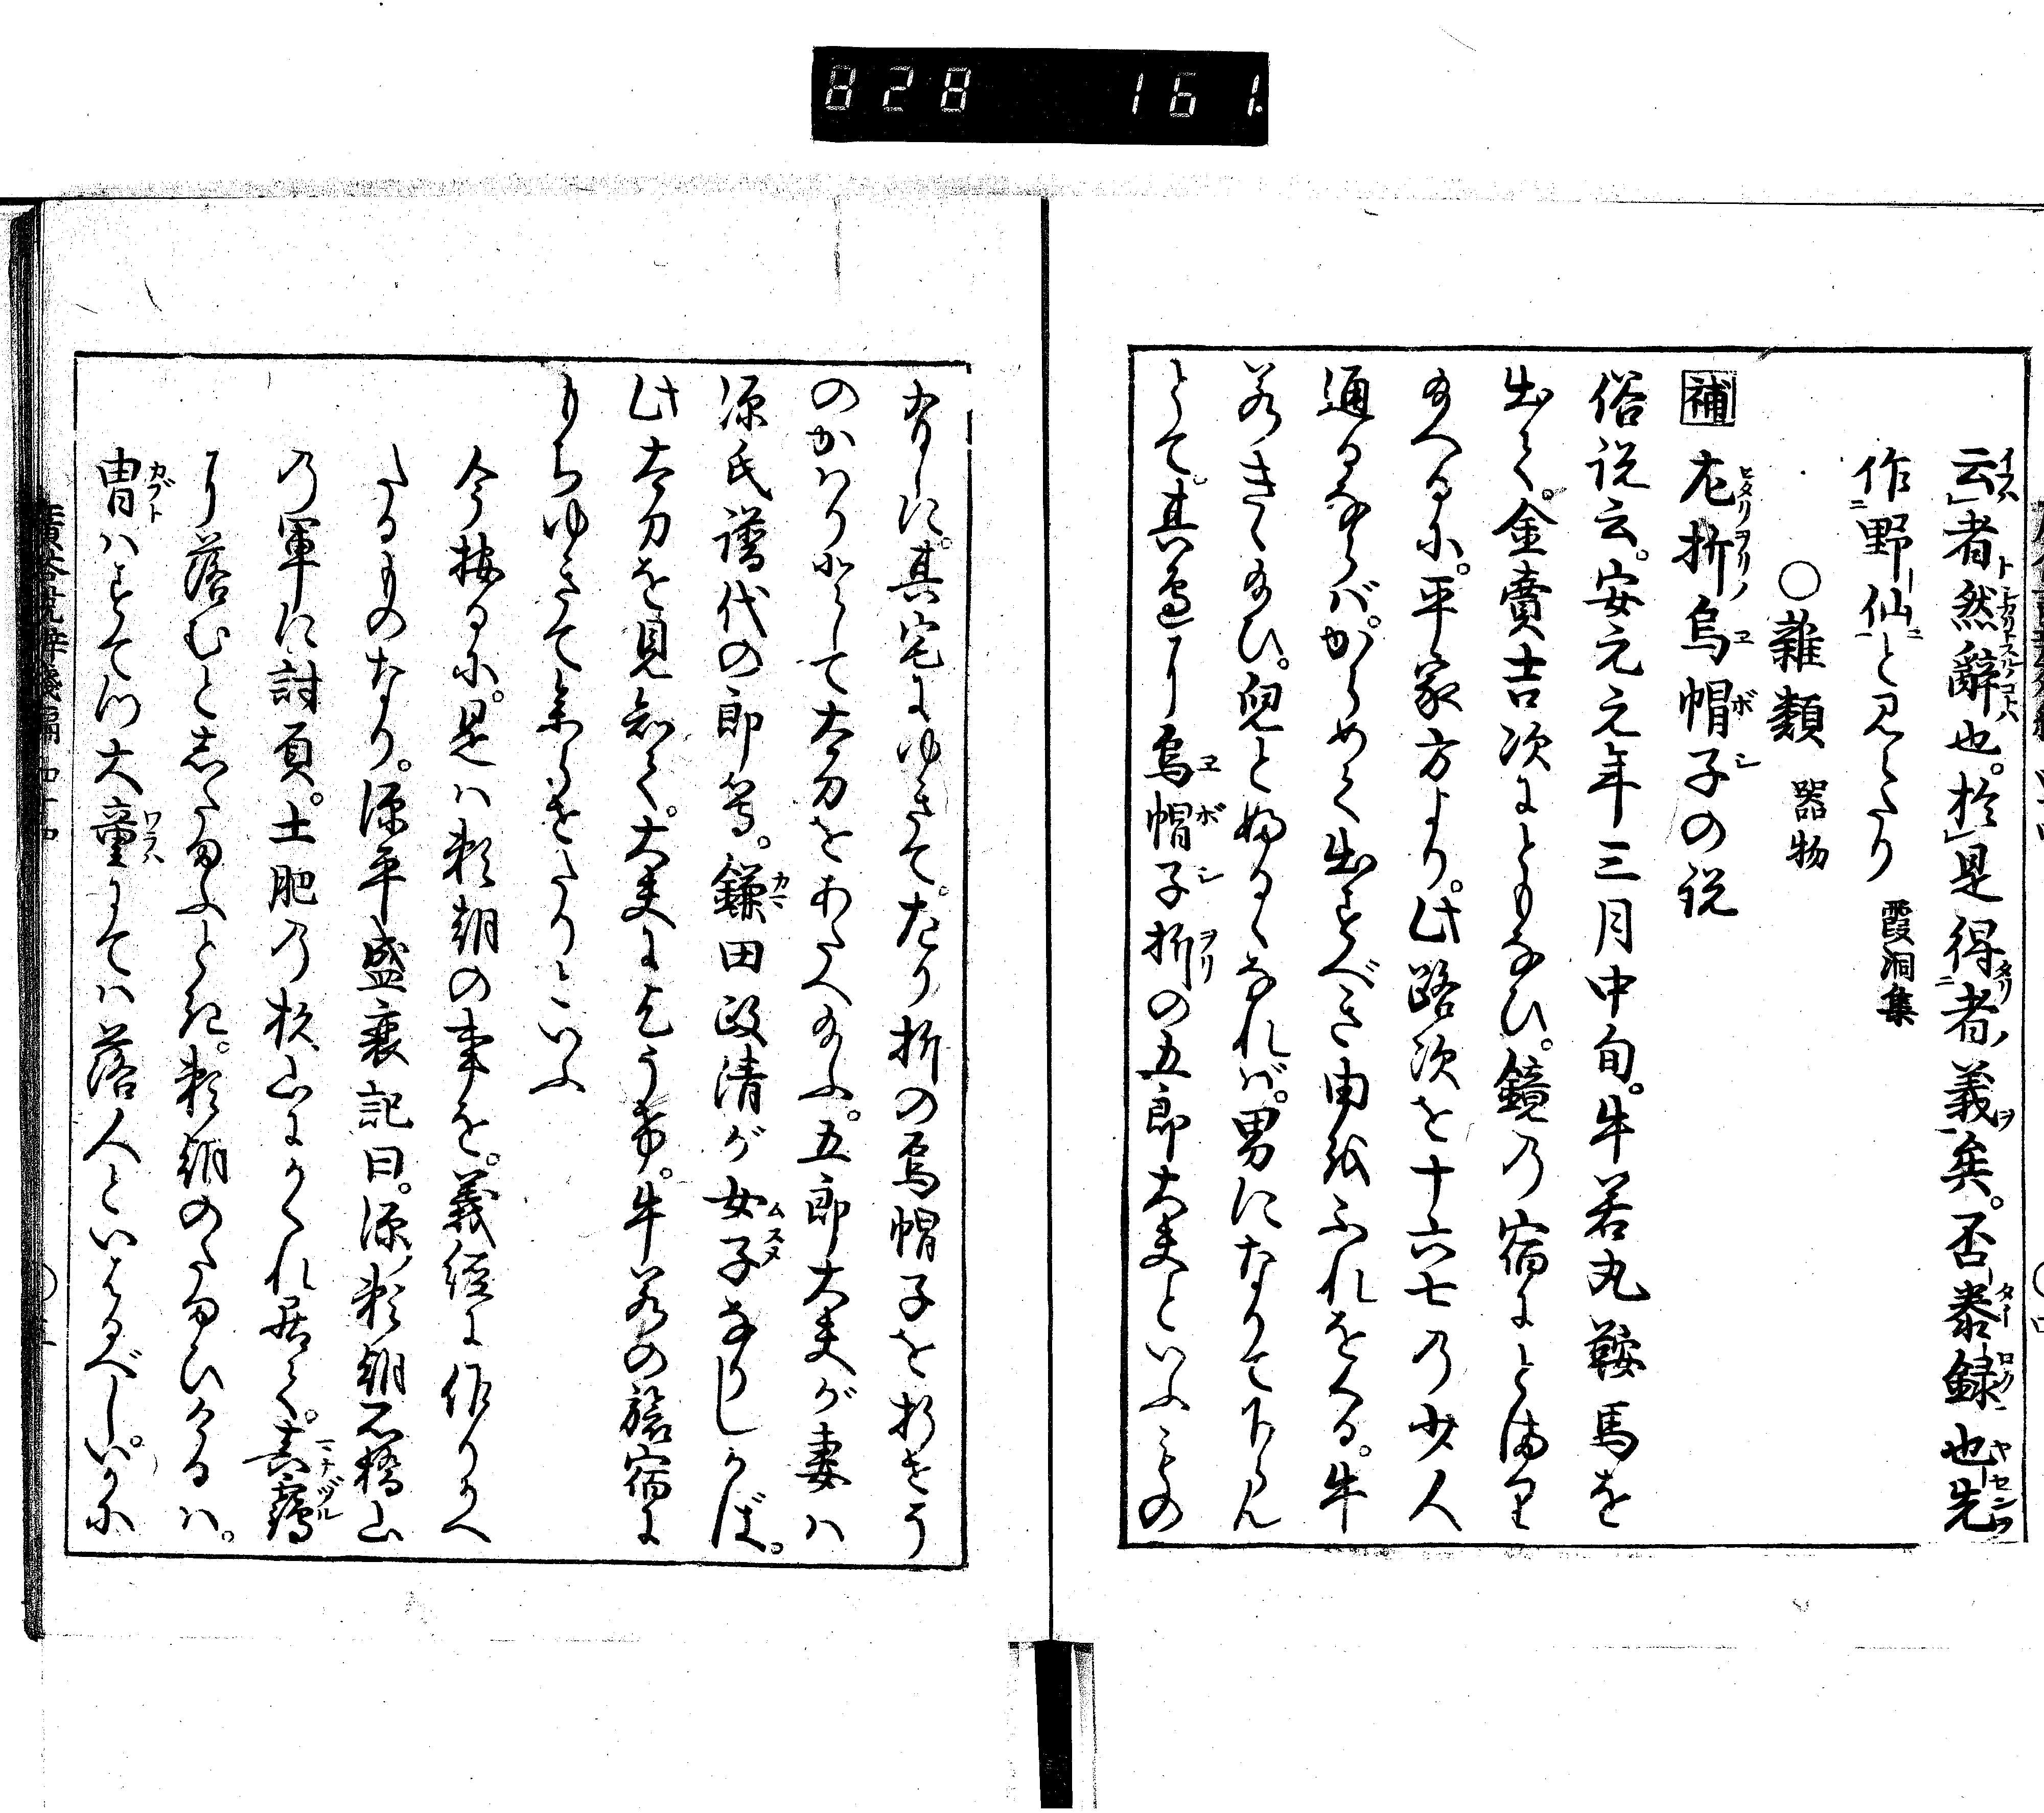 828 161
云者然辭也。於是得者義矣。否泰録也先
作野仙と見えたり 霞洞集
○雑類 器物
補 左折烏帽子の説
俗説云。安元元年三月中旬。牛若丸鞍馬を
出て。金賣吉次にともなひ。鏡の宿にとまり
給へるに。平家方より。此路次を十六七の少人
通るならバ。からめて出すべき由紙ふれをくる。牛
若きゝ給ひ。児と婦るゝなれバ。男になりて下らん
とて。其邊に烏帽子折の五郎大夫といふものの
有しに。其宅にゆきて。左り折の烏帽子を折せう
のかハりにとして太刀をあたへ給ふ。五郎大夫が妻ハ
源氏譜代の郎等。鎌田政清が女子なりしかば。
此太刀を見知て。大夫にとうず。牛若の旅宿に
もちゆきて参らせたりといふ
今按るに。是ハ頼朝の事を。義経に作りかへ
たるものなり。源平盛衰記曰。源頼朝石橋山
乃軍に討負。土肥乃杉山にかくれ居て。真鶴
に落むと志たまふとき。頼朝のたまひけるハ。
冑ハすてつ大童にてハ落人といはるべし。いかに